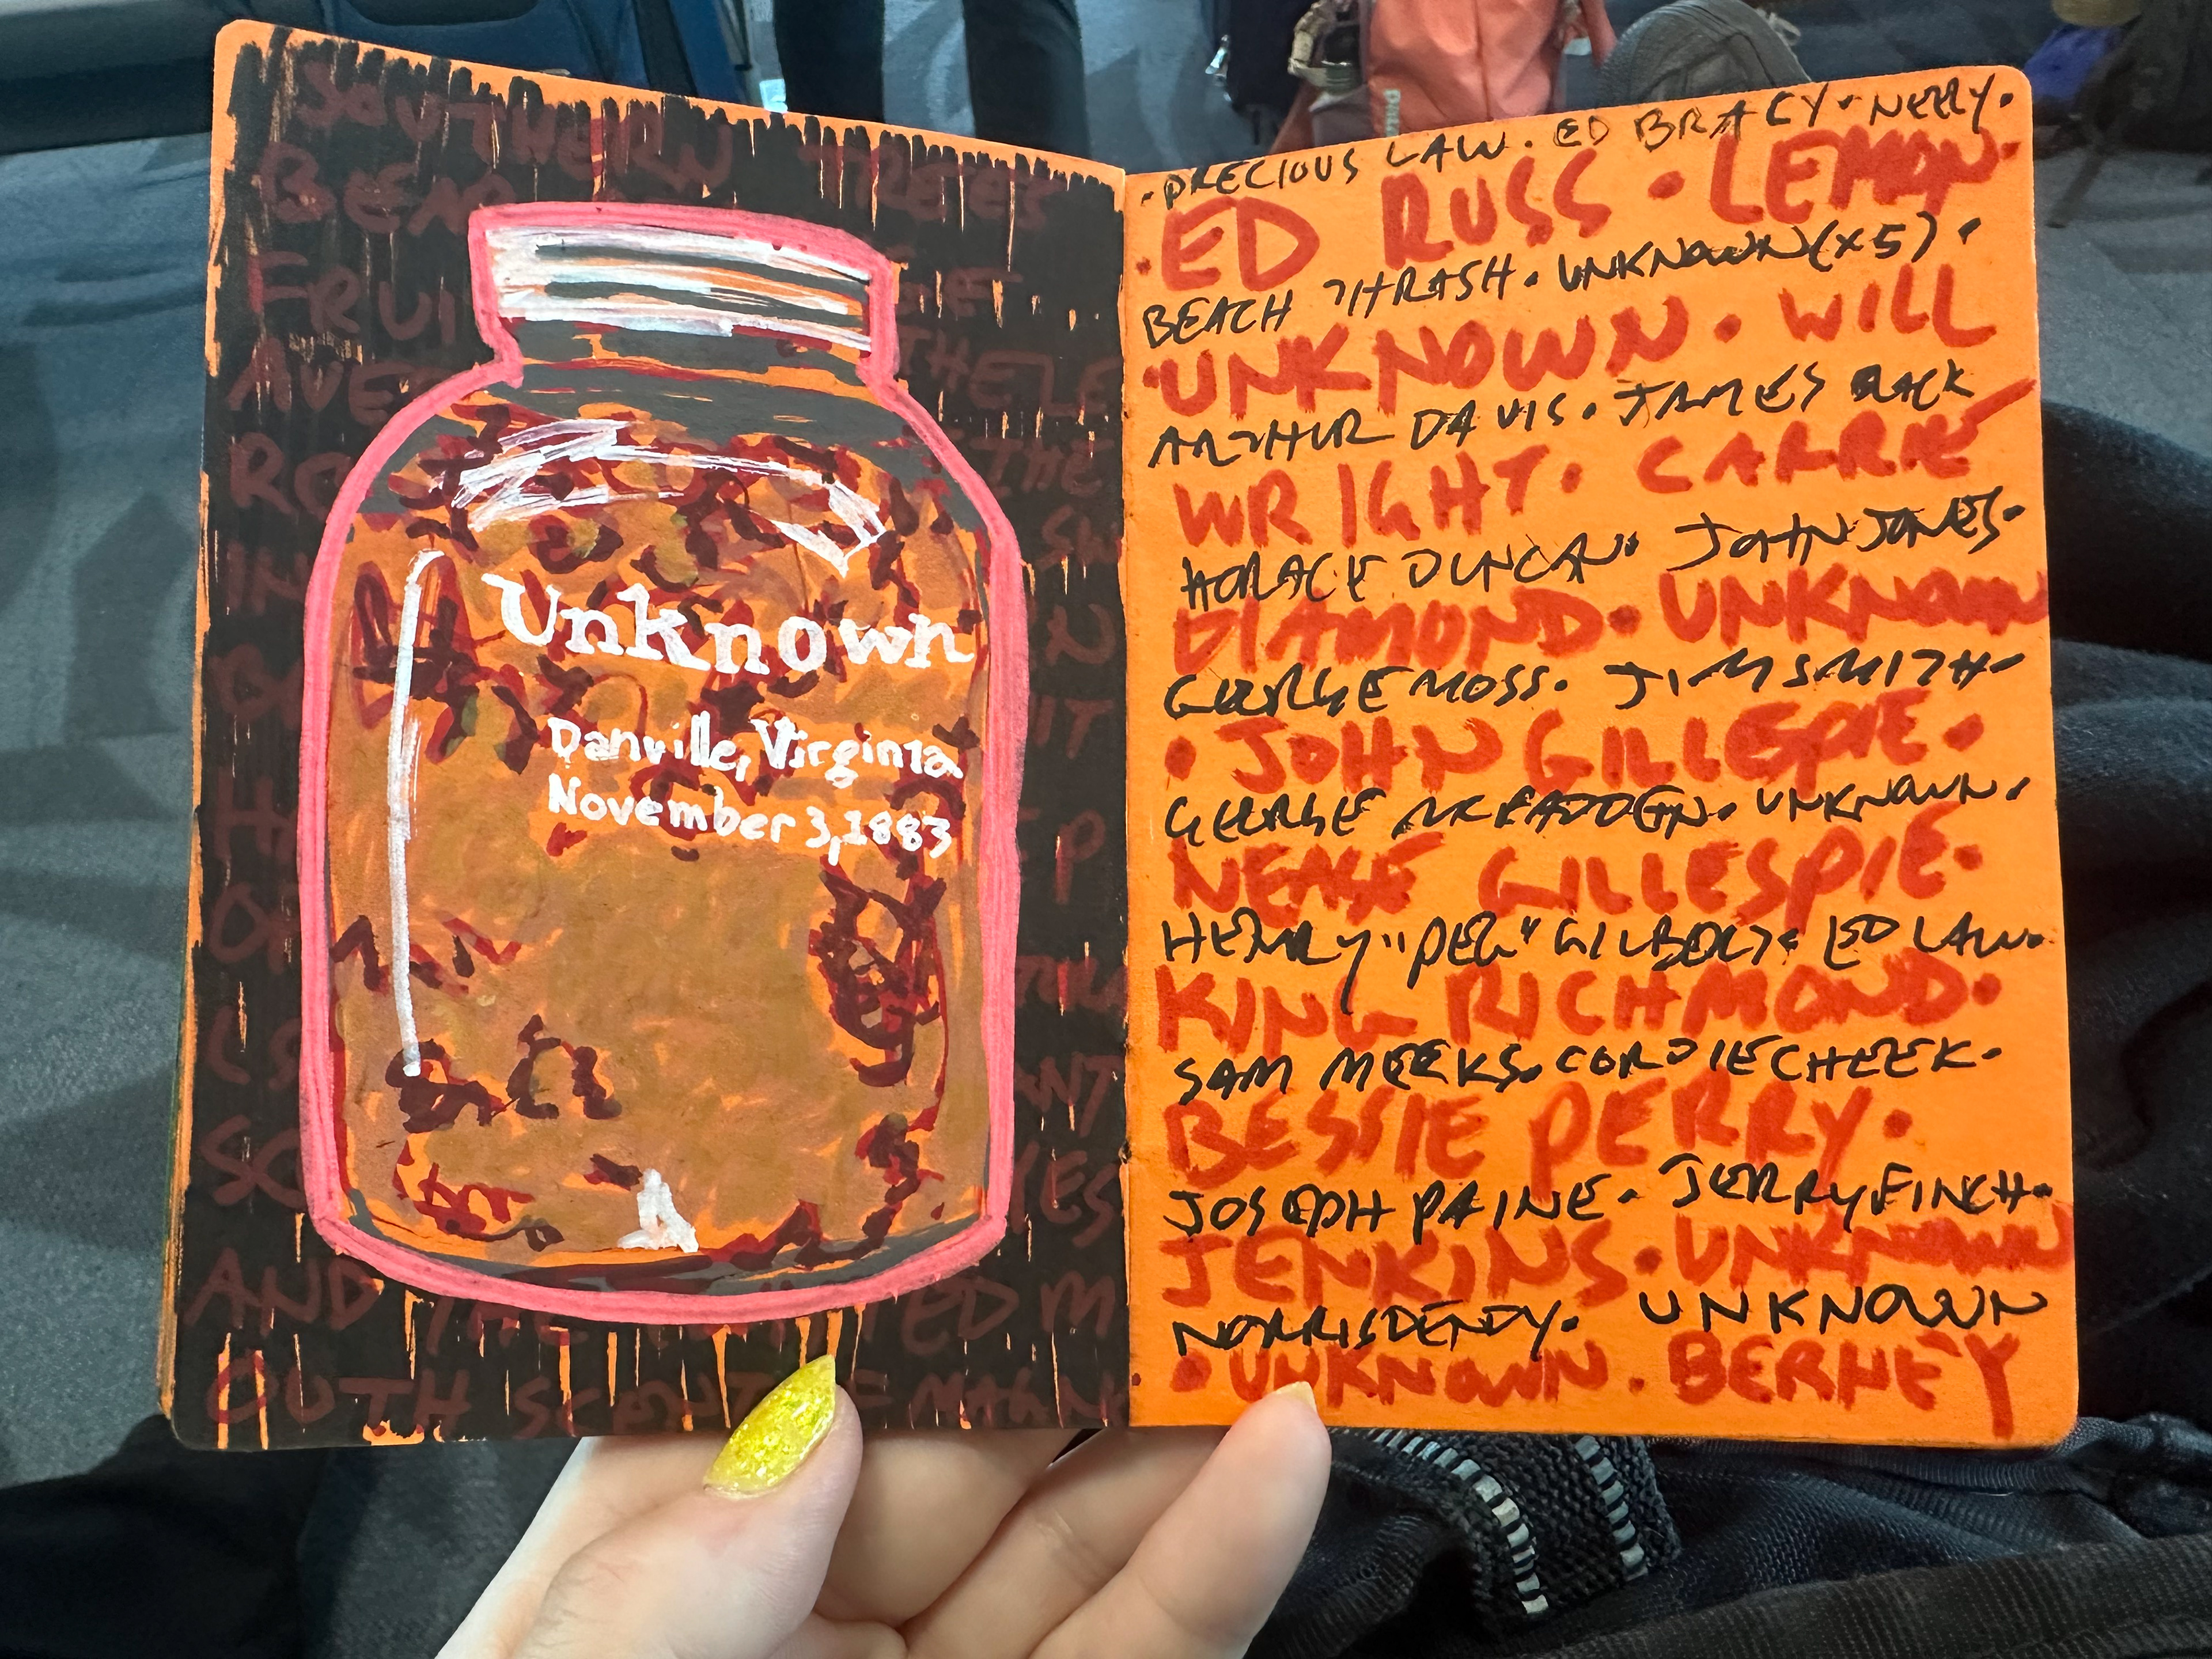 SOUTHERN TREES
BEAR
FRUI
AVE THE LE
RO THE
IN
AND THE ED M
OUTH SCENT OF MAGN
Unknown
Danville, Virginia
November 3, 1883
•PRECIOUS LAW. ED BRACY. NEELY.
•ED RUSS • LEMON•
BEACH THRASH. UNKNOWN (X5).
•UNKNOWN. WILL
ARTHUR DAVIS. JAMES BLACK
WRIGHT. CARRIE
HORACE DUNCAN. JOHN JONES.
DIAMOND. UNKNOWN
GEORGE MOSS. JIM SMITH.
• JOHN GILLESPIE.
GEORGE MCFADDEN. UNKNOWN.
NEASE GILLESPIE.
HENRY "PEG" GILBERT. ED LAW.
KING RICHMOND.
SAM MEEKS. CORDIE CHEEK.
BESSIE PERRY.
JOSEPH PAINE. JERRY FINCH.
JENKINS. UNKNOWN
NORRIS DENDY. UNKNOWN
• UNKNOWN. BERNEY